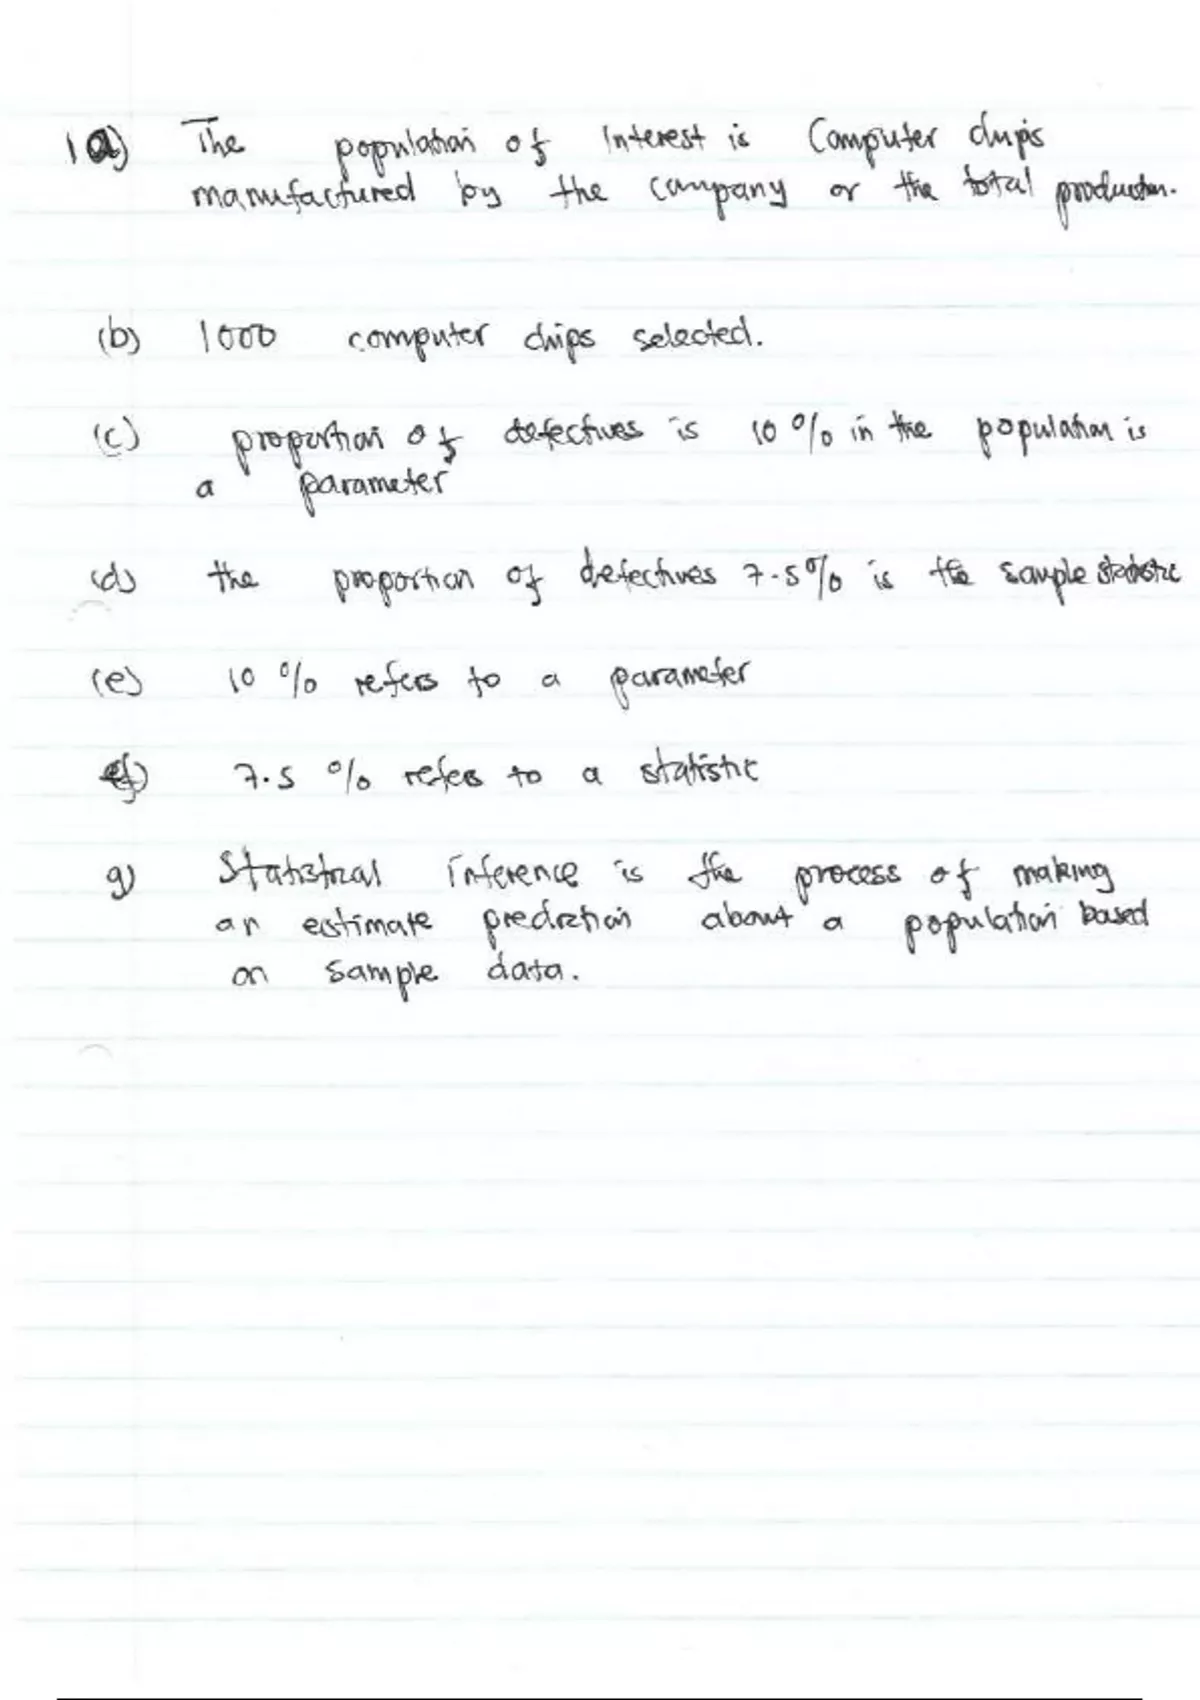 1 a) The population of Interest is Computer chips
manufactured by the company or the total production.
(b) 1000 computer chips selected.
(c) proportion of defectives is 10% in the population is
a parameter
(d) the proportion of defectives 7.5% is the sample statistic
(e) 10% refers to a parameter
f) 7.5% refers to a statistic
g) Statistical inference is the process of making
an estimate prediction about a population based
on sample data.